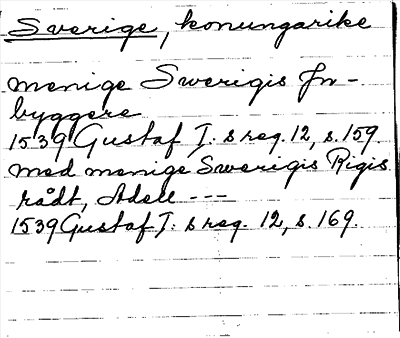 Sverige, konungarike
menige Swerigis In-
byggere
1539 Gustaf I: s reg. 12, s. 159.
med menige Swerigis Rigis
rådt, Adell ---
1539 Gustaf I: s reg. 12, s. 169.